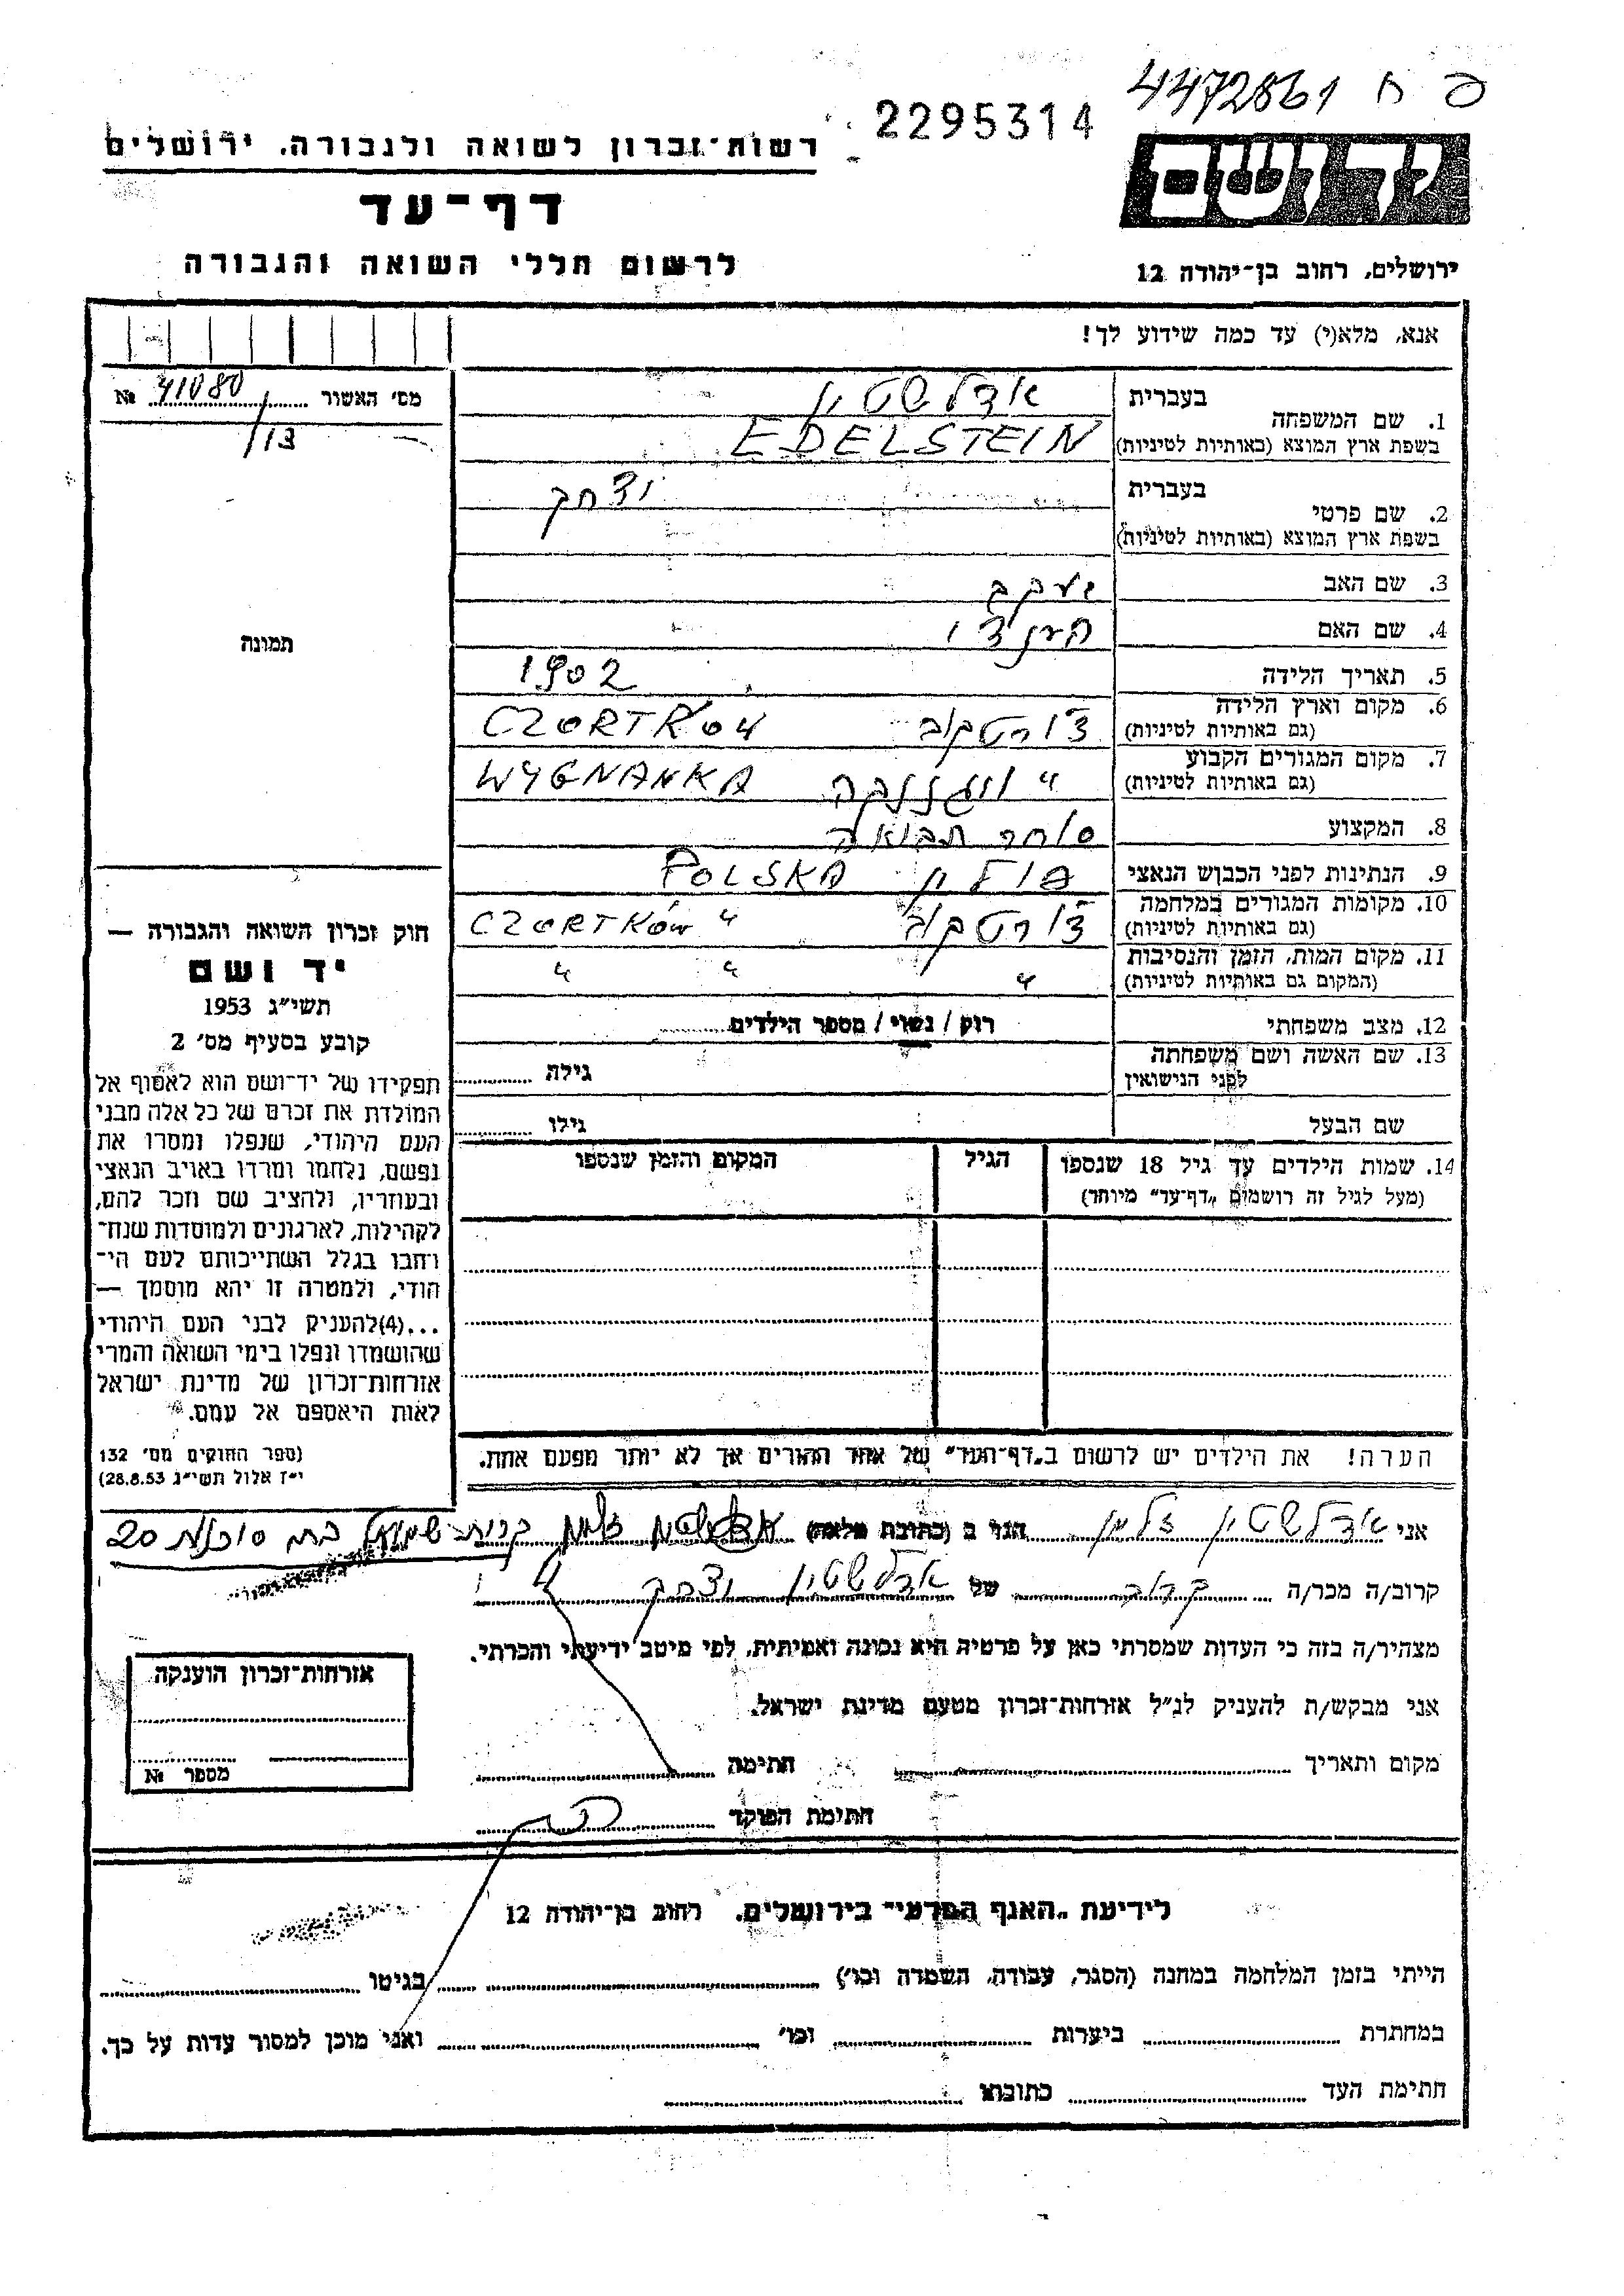 4472861 ח פ
2295314
רשות־זכרון לשואה ולגבורה, ירושלים
דף־עד
לרשום חללי השואה והגבורה
יד ושם
ירושלים, רחוב בן־יהודה 12
אנא, מלא(י) עד כמה שידוע לך!
מס׳ האשור 41080 №
/13
תמונה
1. שם המשפחה
בעברית אדלשטין
בשפת ארץ המוצא (באותיות לטיניות) EDELSTEIN
2. שם פרטי
בעברית יצחק
בשפת ארץ המוצא (באותיות לטיניות)
3. שם האב יעקב
4. שם האם
5. תאריך הלידה 1902
6. מקום וארץ הלידה
(גם באותיות לטיניות) צ׳ורטקוב CZORTKOW
7. מקום המגורים הקבוע
(גם באותיות לטיניות) " ויגננקה WYGNANKA
8. המקצוע סוחר תבואה
9. הנתינות לפני הכבוש הנאצי פולין POLSKA
10. מקומות המגורים במלחמה
(גם באותיות לטיניות) צ׳ורטקוב " CZORTKÓW
11. מקום המות, הזמן והנסיבות
(המקום גם באותיות לטיניות) " " "
12. מצב משפחתי רוק / נשוי / מספר הילדים
13. שם האשה ושם משפחתה
לפני הנישואין גילה
שם הבעל גילו
14. שמות הילדים עד גיל 18 שנספו הגיל המקום והזמן שנספו
(מעל לגיל זה רושמים „דף־עד” מיוחד)
חוק זכרון השואה והגבורה —
יד ושם
תשי״ג 1953
קובע בסעיף מס׳ 2
תפקידו של יד־ושם הוא לאסוף אל
המולדת את זכרם של כל אלה מבני
העם היהודי, שנפלו ומסרו את
נפשם, נלחמו ומרדו באויב הנאצי
ובעוזריו, ולהציב שם וזכר להם,
לקהילות, לארגונים ולמוסדות שנח־
רחבו בגלל השתייכותם לעם הי־
הודי, ולמטרה זו יהא מוסמך —
...(4)להעניק לבני העם היהודי
שהושמדו ונפלו בימי השואה והמרי
אזרחות־זכרון של מדינת ישראל
לאות היאספם אל עמם.
(ספר החוקים מס׳ 132
י״ז אלול תשי״ג 28.8.53)
הערה! את הילדים יש לרשום ב„דף־העד” של אחד ההורים אך לא יותר מפעם אחת.
אני אדלשטין זלמן הגר ב (כתובת מלאה) קרית שמואל 20
קרוב/ה מכר/ה קרוב של אדלשטין יצחק
מצהיר/ה בזה כי העדות שמסרתי כאן על פרטיה היא נכונה ואמיתית, לפי מיטב ידיעתי והכרתי.
אני מבקש/ת להעניק לנ״ל אזרחות־זכרון מטעם מדינת ישראל.
מקום ותאריך חתימה
חתימת הפוקד
אזרחות־זכרון הוענקה
מספר №
לידיעת „האגף הפרטי” בירושלים, רחוב בן־יהודה 12
הייתי בזמן המלחמה במחנה (הסגר, עבודה, השמדה וכו׳) בגיטו
במחתרת ביערות וכו׳ ואני מוכן למסור עדות על כך.
חתימת העד כתובתו